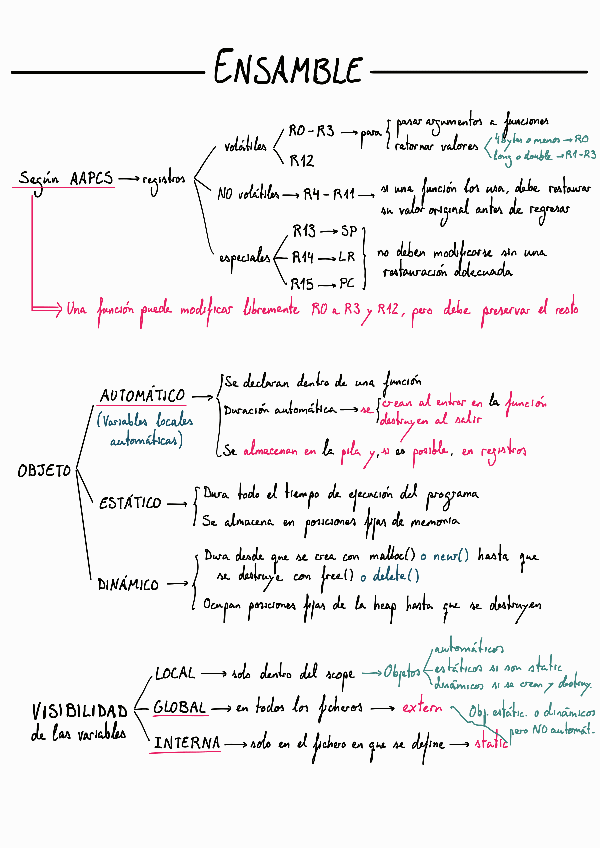 ENSAMBLE
Según AAPCS → registros
volátiles
R0-R3 → para
pasar argumentos a funciones
retornar valores
4 bytes o menos → R0
long o double → R1-R3
R12
NO volátiles → R4-R11 → si una función los usa, debe restaurar
su valor original antes de regresar
especiales
R13 → SP
R14 → LR
R15 → PC
no deben modificarse sin una
restauración adecuada
Una función puede modificar libremente R0 a R3 y R12, pero debe preservar el resto
OBJETO
AUTOMÁTICO
(Variables locales
automáticas)
Se declaran dentro de una función
Duración automática → se
crean al entrar en la función
destruyen al salir
Se almacenan en la pila y, si es posible, en registros
ESTÁTICO
Dura todo el tiempo de ejecución del programa
Se almacena en posiciones fijas de memoria
DINÁMICO
Dura desde que se crea con malloc() o new() hasta que
se destruye con free() o delete()
Ocupan posiciones fijas de la heap hasta que se destruyen
VISIBILIDAD
de las variables
LOCAL → solo dentro del scope → Objetos
automáticos
estáticos si son static
dinámicos si se crean y destruy.
GLOBAL → en todos los ficheros → extern
INTERNA → solo en el fichero en que se define → static
Obj. estátic. o dinámicos
pero NO automát.